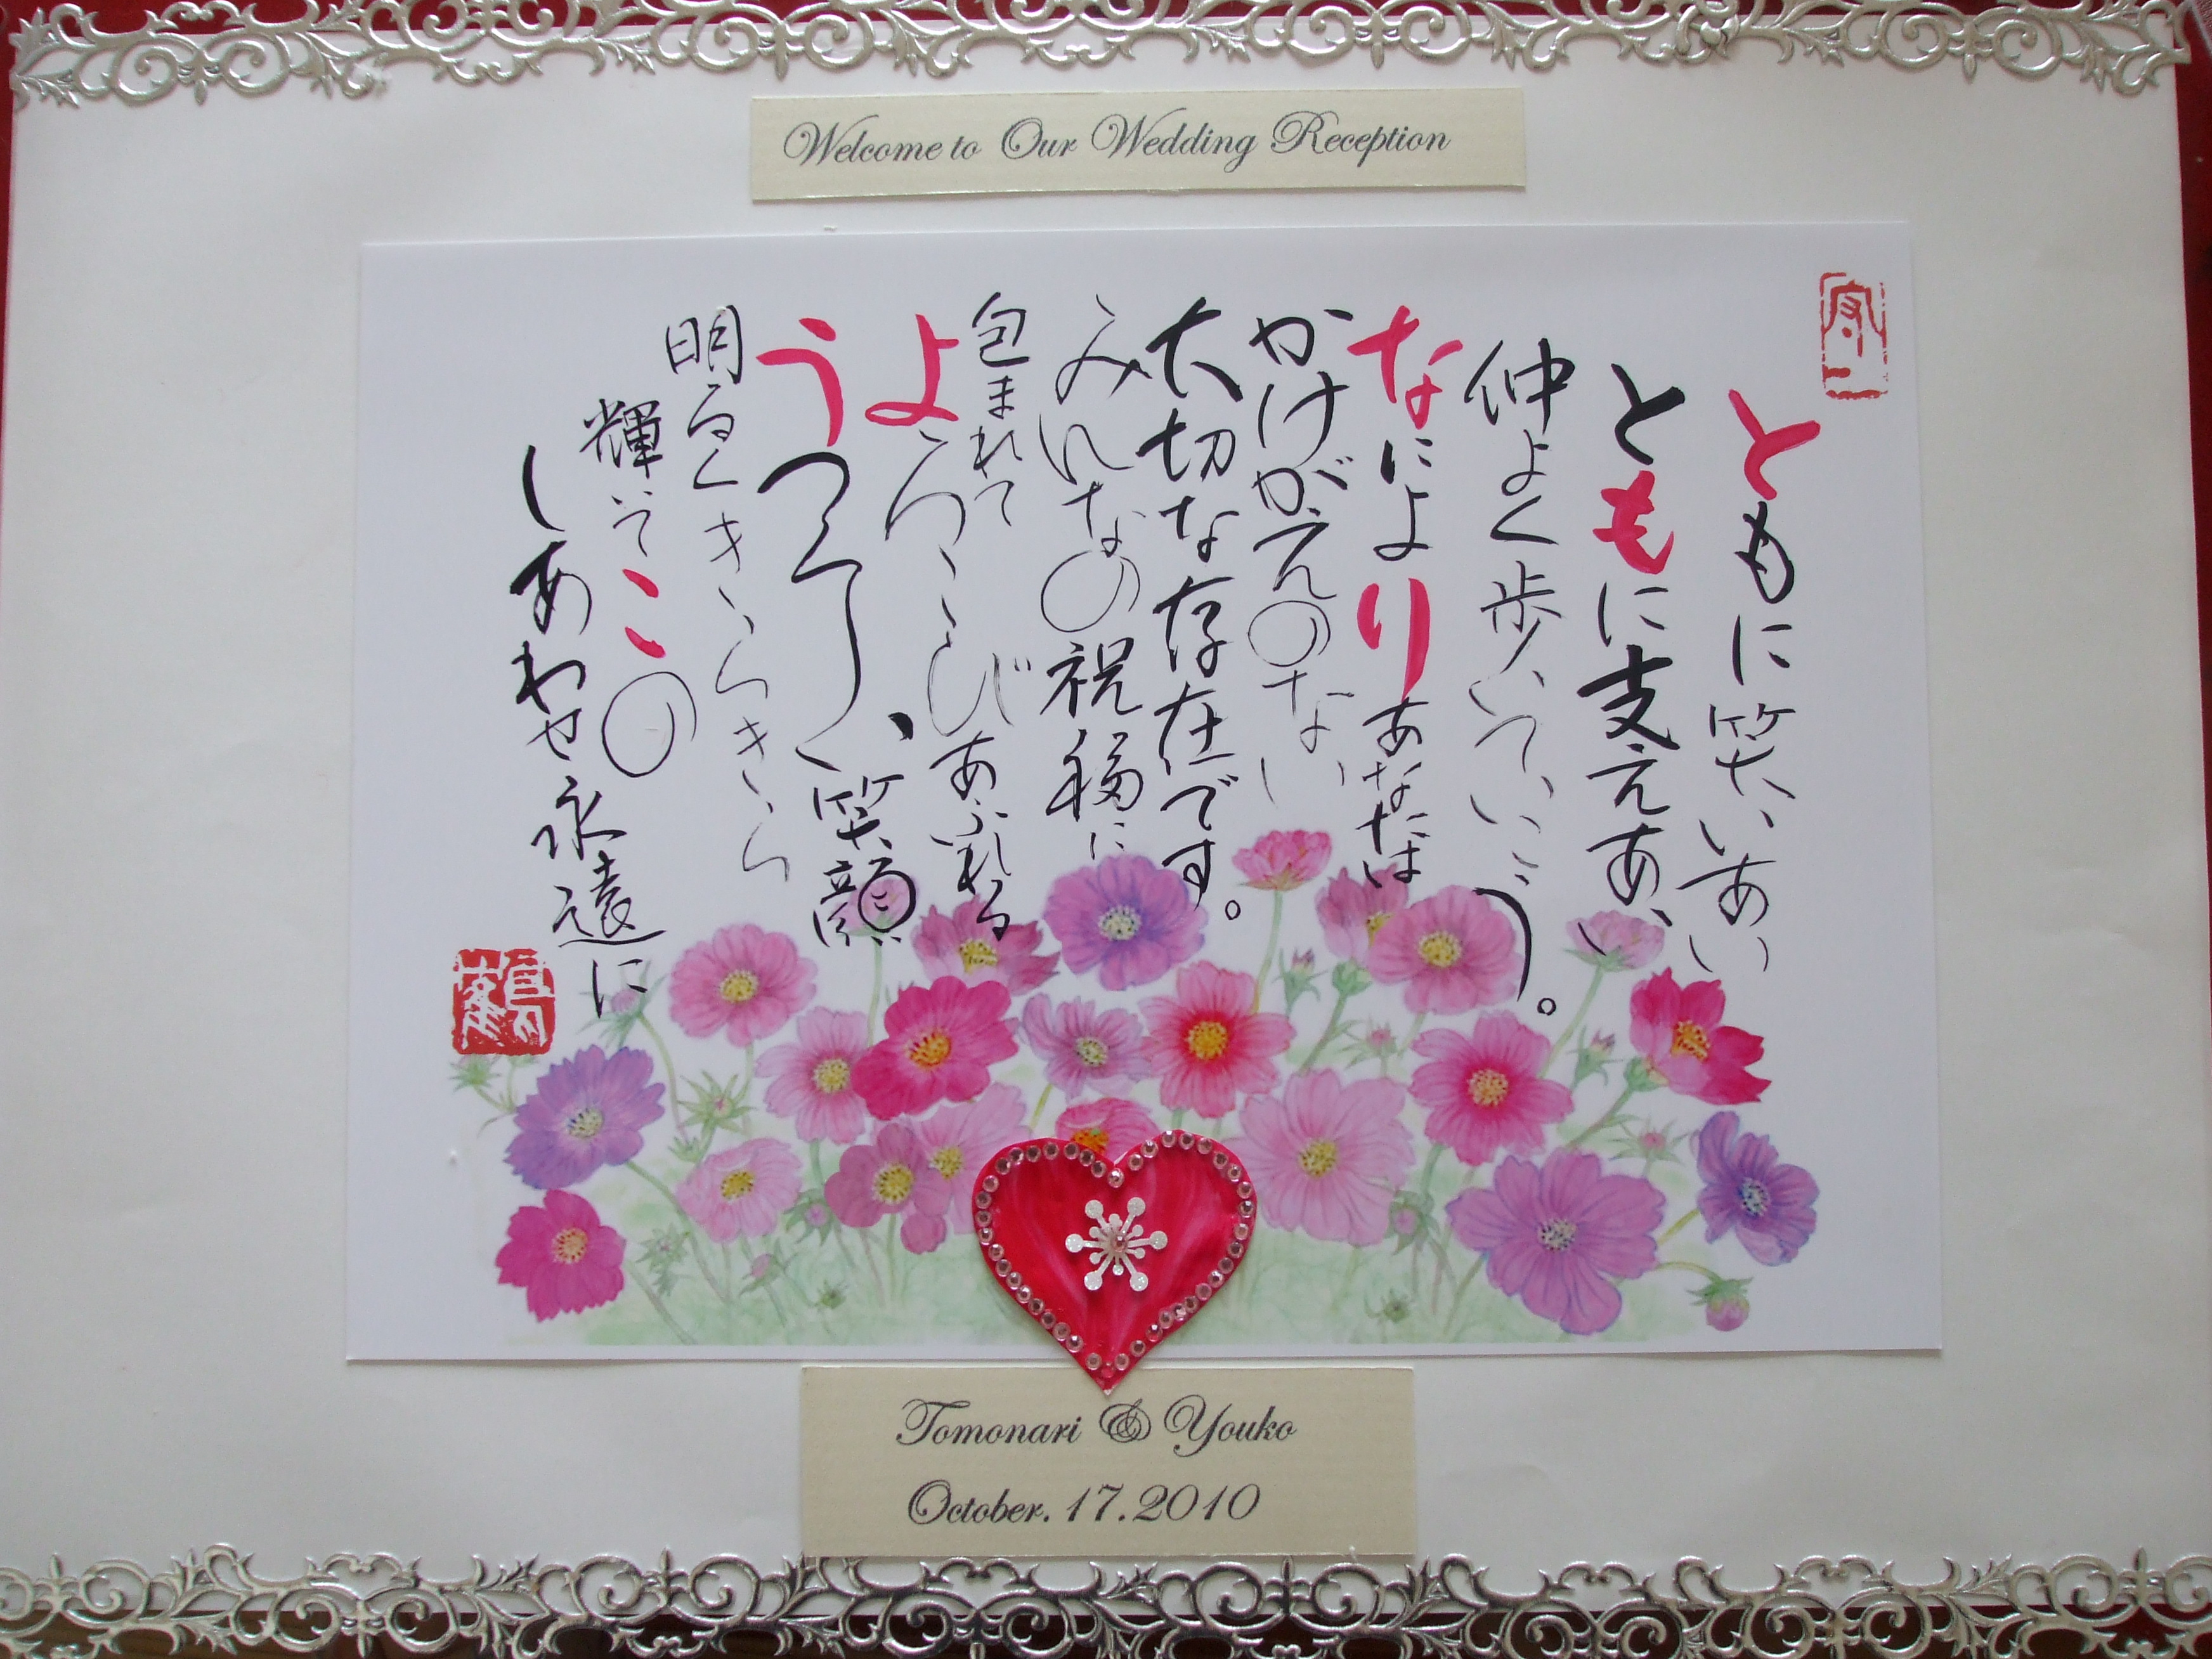 Welcome to Our Wedding Reception
ともに笑いあい
ともに支えあい
仲よく歩いていこう。
なによりあなたは
かけがえのない
大切な存在です。
みんなの祝福に
包まれて
よろこびあふれる
うつくしく、笑顔
明るくきらきら
輝いてこの
しあわせ永遠に
Tomonari & Youko
October.17.2010